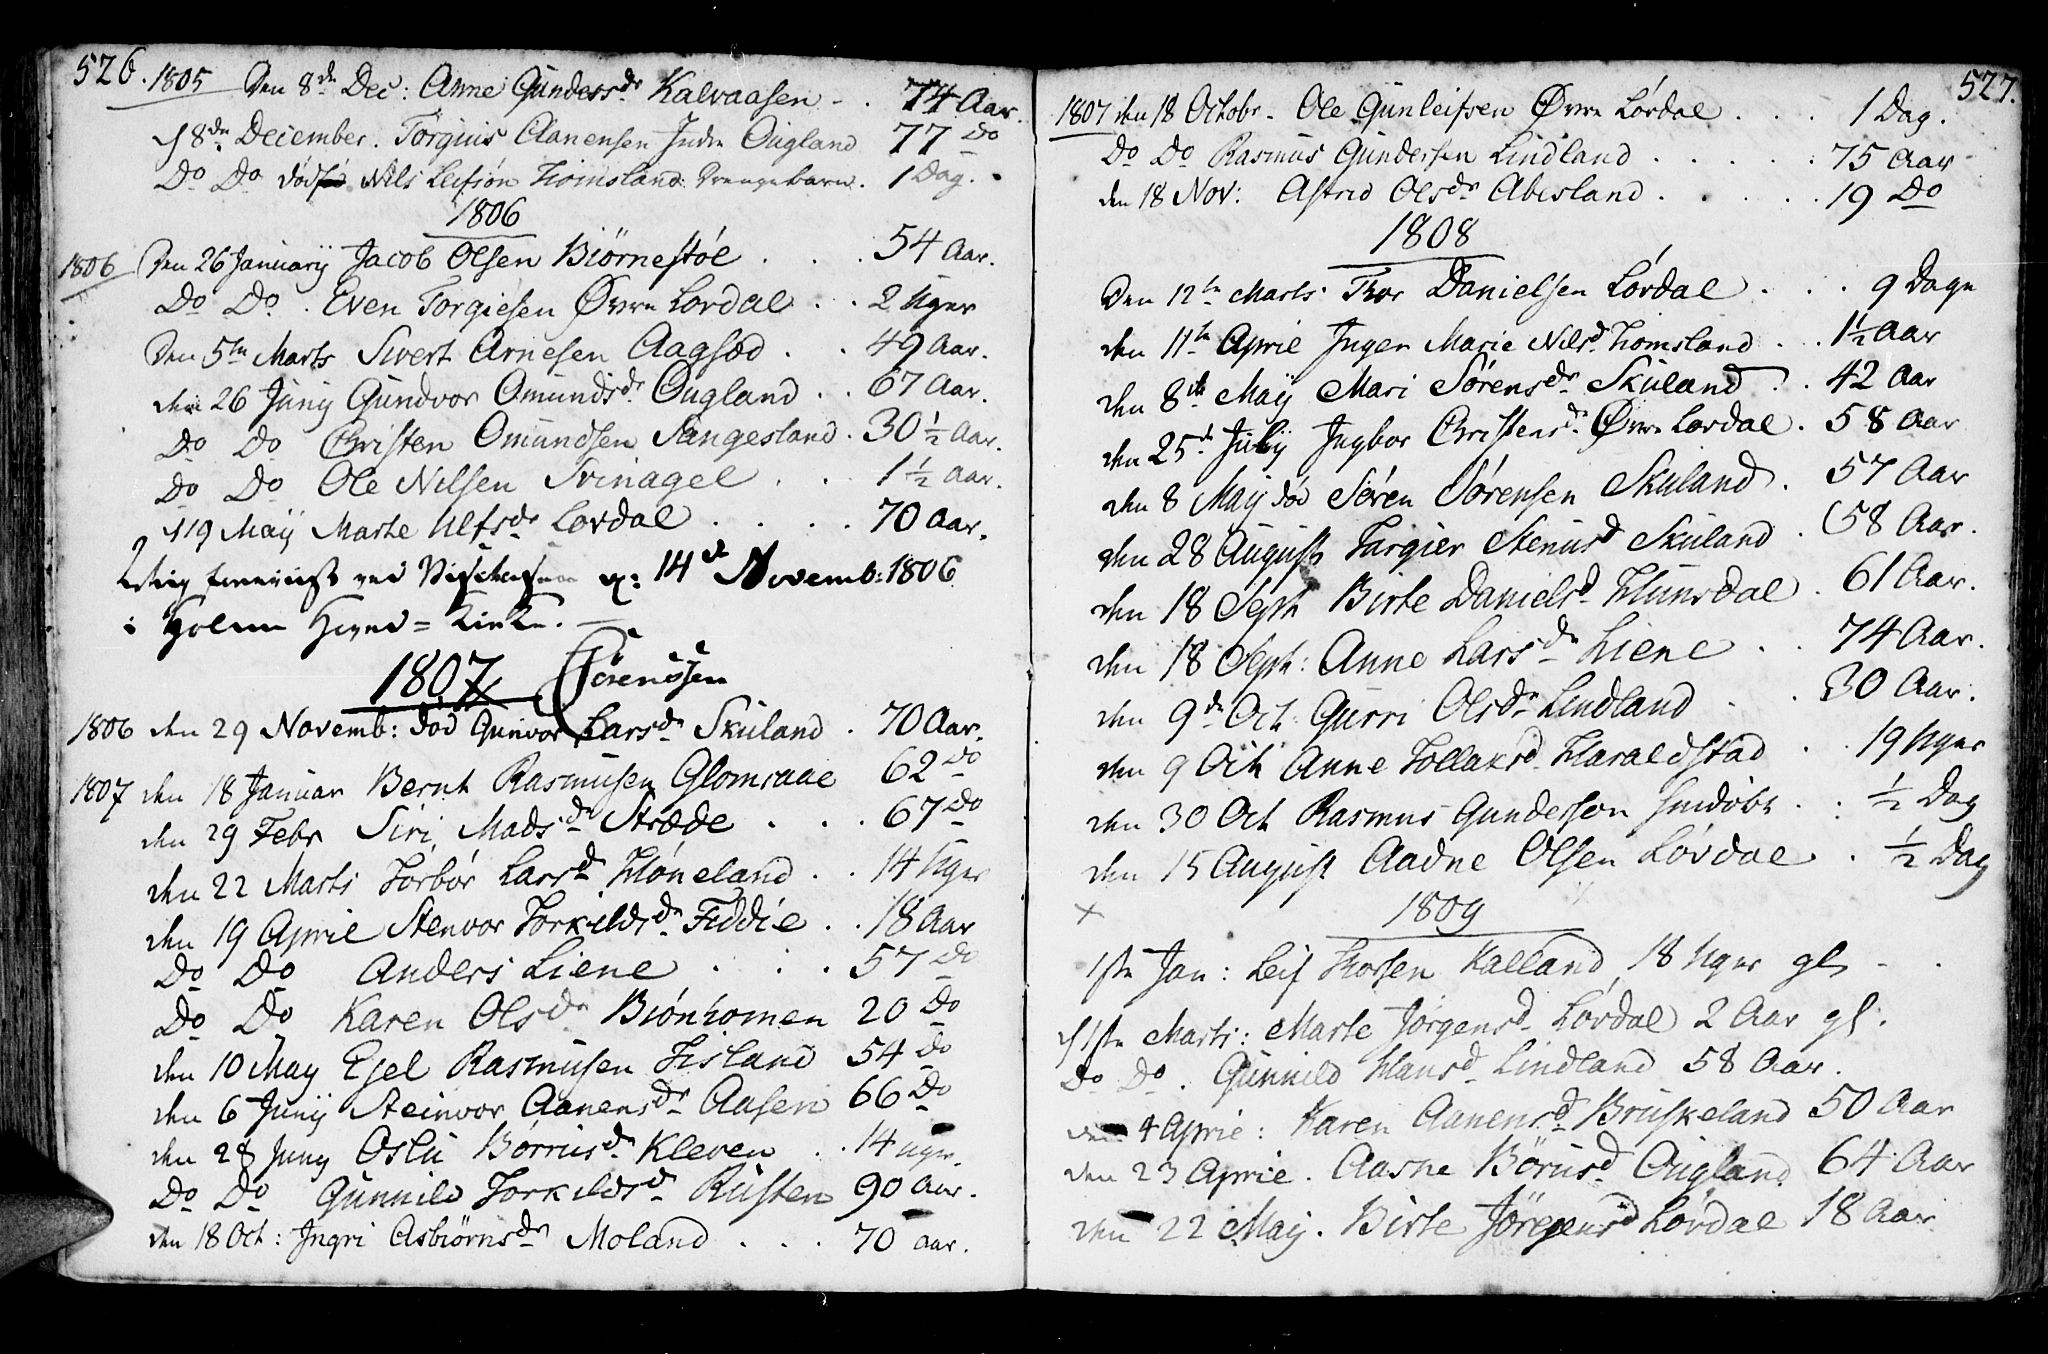 526.
1805 Den 8de Dec: Anne Gundersdr Kalvaasen - . 74 Aar.
d 8de December. Torguis Aanensen Indre Øugland 77 Do
Do Do død Nils Leifsøn Homsland. Drengebarn. 1 Dag.
1806
1806 Den 26 Januarÿ Jacob Olsen Biørnestøl . . . 54 Aar.
Do Do . Even Torgiesen Øvre Lovdal . . 2 Uger
Den 5te Marts Sivert Arnesen Aagsod . . 49 Aar.
den 26 Junÿ Gundvor Omundsdr Øugland . . 67 Aar.
Do Do Christen Omundsen Sangesland . 30 1/2 Aar.
Do Do Ole Nilsen Svinagel . . . 1 1/2 Aar.
d 19 Maÿ Marte Ulfsdr Lovdal . . . . 70 Aar.
ved 14de Novemb: 1806
i Holme Hoved = Kirke.
Sørenssen
1807
1806 den 29 Novemb: død Gunvor Larsdr Skuland . 70 Aar.
1807 den 18 Januar Bernt Rasmusen Glomsaae 62 Do
den 29 Febr Siri Madsdr Stræde . . . 67 Do
den 22 Marts Torbor Larsdr Høneland . . 14 Uger
den 19 April Stenvor Torkildsdr Fiddie . . 18 Aar
Do Do Anders Liene . . . 57 Do
Do Do Karen Olsdr Biønhomen 20 Do
den 10 May Egel Rasmusen Hisland 54 Do
den 6 Junÿ Steinvor Aanensdr Aasen 66 Do
den 28 Juny Oslu Børrusdr Kleven . . 14 uger.
Do Do Gunnild Torkildsdr Rusten 90 Aar.
den 18 Oct: Ingri Asbiørnsdr Moland . . . 70 aar.
527.
1807 den 18 Octobr - Ole Gunleifsen Øvre Løvdal . . . 1 Dag.
Do Do Rasmus Gundersen Lindland . . . . . 75 Aar
den 18 Nov: Astrid Olsdr Abesland . . . . . 19 Do
1808
Den 12te Marts Thor Danielsen Løvdal . . . 9 Dage
den 11te April Inger Marie Nilsd Homsland . . 1 1/2 Aar
den 8de Maÿ Mari Sørensdr Skuland . . 42 Aar
den 25de Julÿ Ingbor Christensd. Øvre Lovdal . 58 Aar
den 8 Maÿ død Søren Sørensen Skuland . 57 Aar
den 28 August Targier Stenusd Skuland . (58 Aar.
den 18 Sept Birte Danielsd Hunsdal . 61 Aar.
den 18 Sept: Anne Larsdr Liene . . 74 Aar.
den 9de Oct: Gurri Olsdr Lindland . . 30 Aar.
den 9 Oct Anne Tollaksd Haraldstad . . 19 Uger
den 30 Oct Rasmus Gunderson . . 1/2 Dag
den 15 August Aadne Olsen Løvdal . 1/2 Dag
1809
1ste Jan: Leif Thorsen Kalland 18 Uger gl - .
d 1ste Marts: Marte Jørgensd Løvdal 2 Aar gl.
Do Do . Gunnild Hansd Lindland 58 Aar.
den 4 April: Karen Aanensd Bruskeland 50 Aar
den 23 April. Aasne Børusd Øugland 64 Aar
den 22 Maÿ. Birte Jørgensd Løvdal 18 Aar